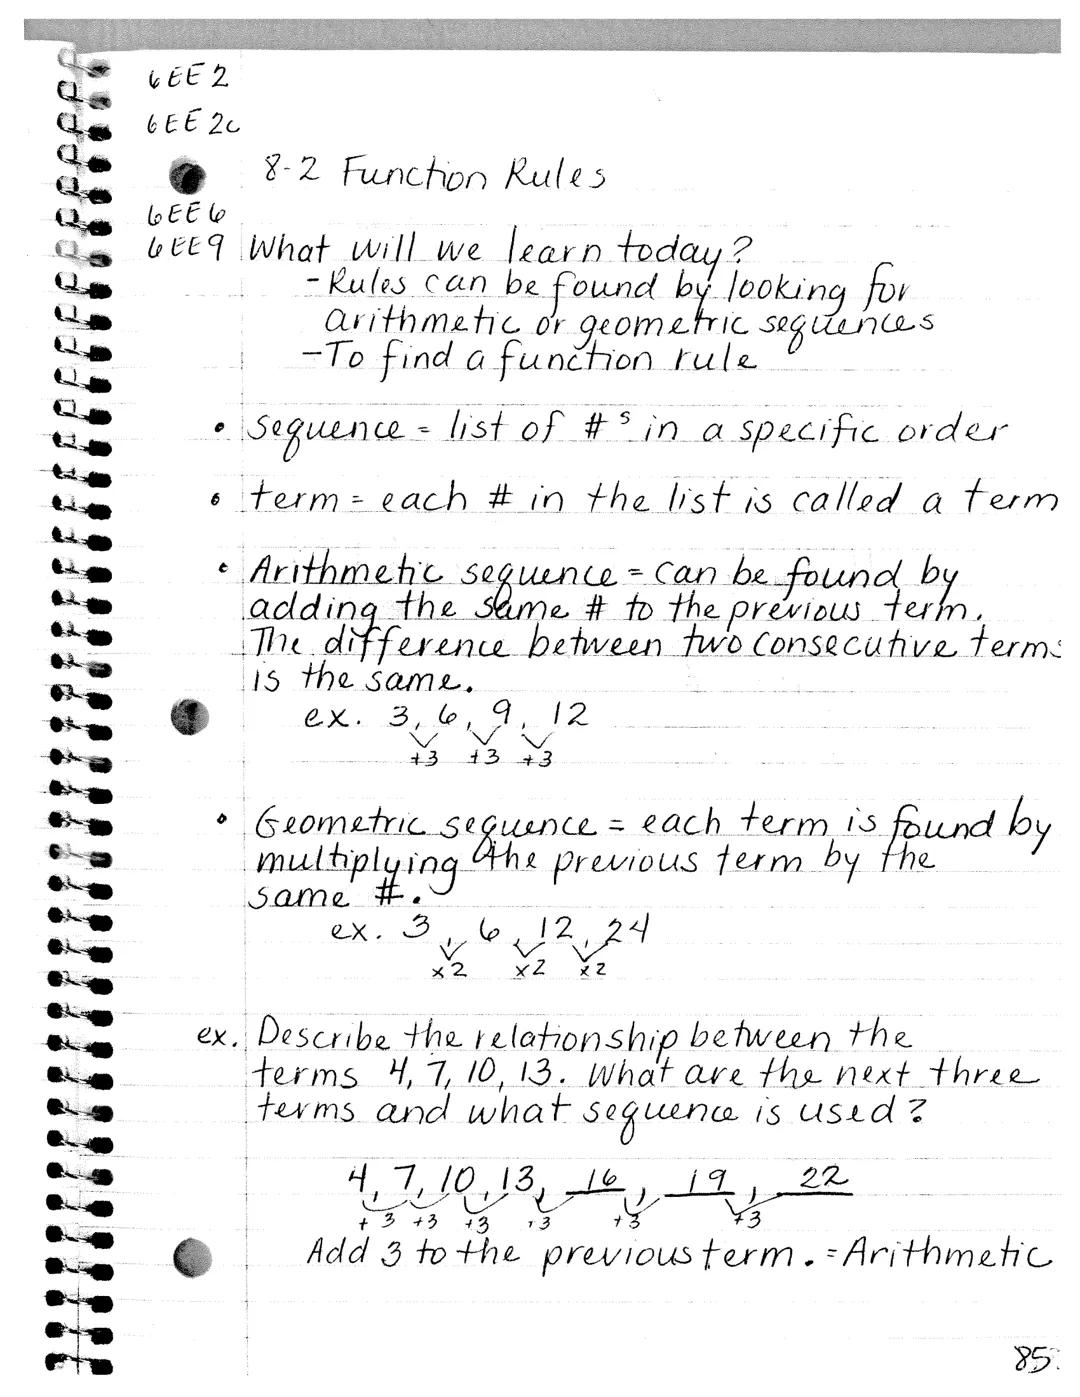 6EE2
6EE2c
8-2 Function Rules
6EE6
6EE9 What will we learn today?
- Rules can be found by looking for
arithmetic or geometric sequences
- To find a function rule
• sequence = list of #s in a specific order
• term = each # in the list is called a term
• Arithmetic sequence = can be found by
adding the same # to the previous term.
The difference between two consecutive terms
is the same.
ex. 3, 6, 9, 12
+3 +3 +3
• Geometric sequence = each term is found by
multiplying the previous term by the
same #.
ex. 3, 6, 12, 24
x2 x2 x2
ex. Describe the relationship between the
terms 4, 7, 10, 13. What are the next three
terms and what sequence is used?
4, 7, 10, 13, 16, 19, 22
+3 +3 +3 +3 +3 +3
Add 3 to the previous term. = Arithmetic
85